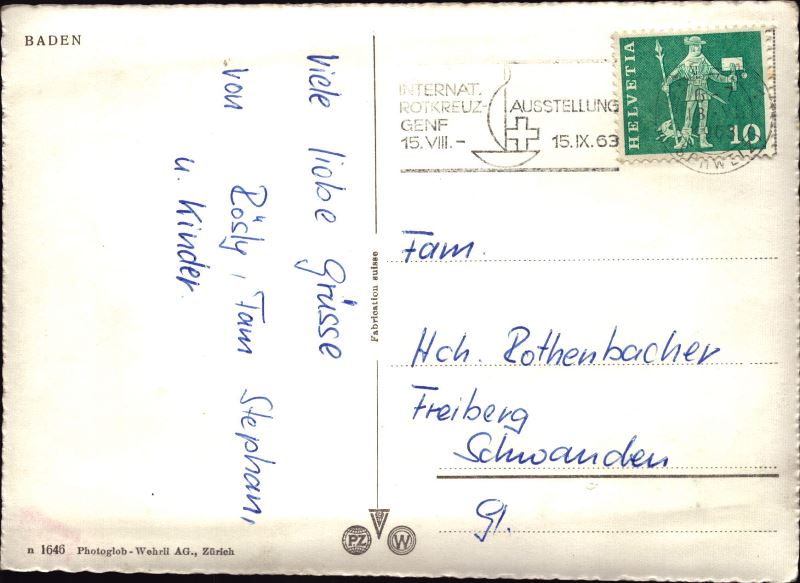 BADEN
Viele liebe Grüsse
von Rösly, Fam Stephan,
u. Kinder.
n 1646 Photoglob-Wehrli AG., Zürich
Fabrication suisse
PZ
W
INTERNAT.
ROTKREUZ- AUSSTELLUNG
GENF
15.VIII.- 15.IX.63
HELVETIA
10
Fam.
Hch. Rothenbacher
Freiberg
Schwanden
Gl.